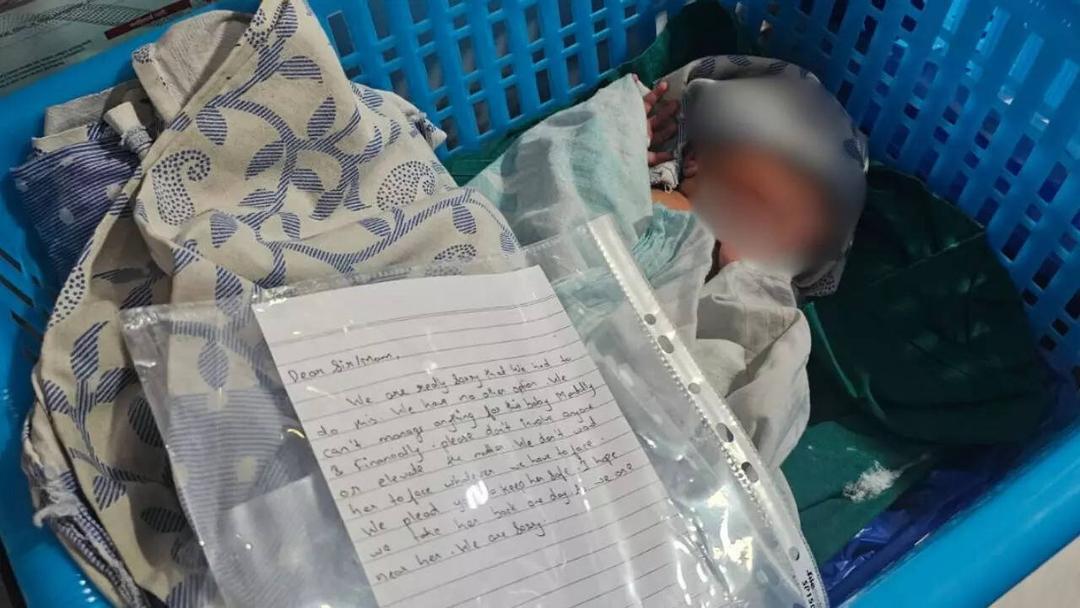 Dear Sir/Mam,
We are really sorry that we had to
do this. We has no other option. We
can't manage anything for this baby Mentally
& financially. please don't involve anyone
or elevate the matter. We don't want
her to face whatever we have to face.
We plead you = keep her safe. I hope
we take her back one day. we are
near her. We are sorry.